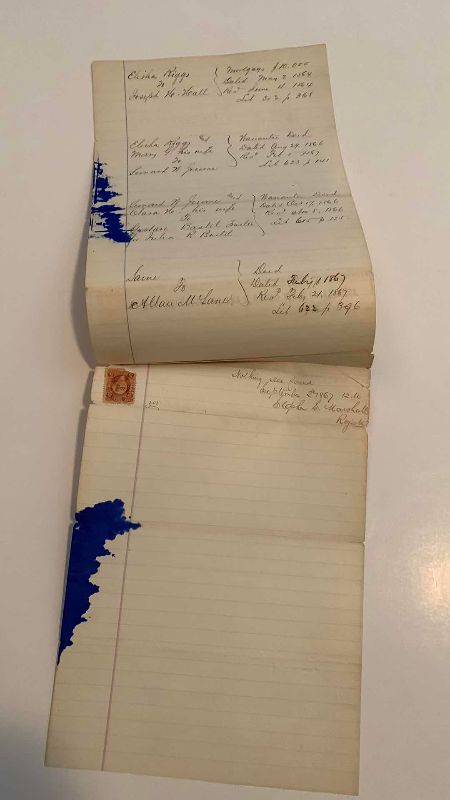 Elisha Riggs
To
Joseph W. Hall
Mortgage $10,000
Dated May 2, 1864
Recd June 11 1864
Lib 302 p 368
Elisha Riggs &
Mary his wife
To
Leonard W Jerome
Warrantee Deed
Dated Aug 24, 1866
Recd Feb 1867
Lib 623 p
Leonard W. Jerome &
Clara H. his wife
To
Trustee
for Julia R
Warrantee Deed
Dated Oct 17, 1866
1866
Lib 615 p 125
Same
To
Allan McLane
Deed
Dated Feby 1 1867
Recd Feby 21, 1867
Lib 622 p 396
Nothing else found
September 1867 12 M
Marshall
Register